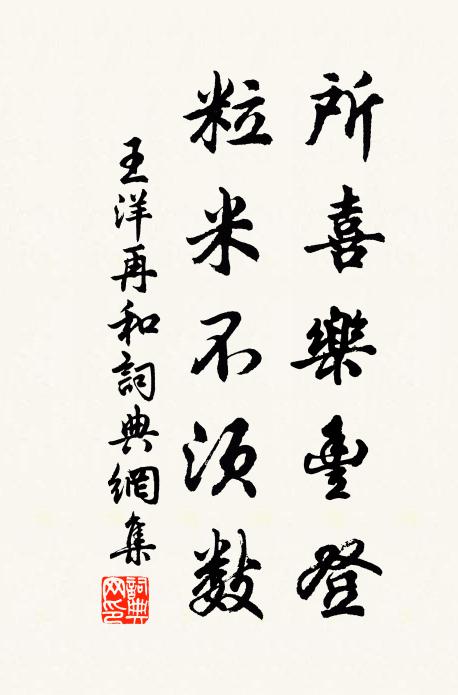 所喜樂豊登
粒米不須數
王洋再和詞典網集
詞典網印